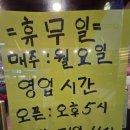 =휴무일=
매주:월요일
영업시간
오픈:오후5시